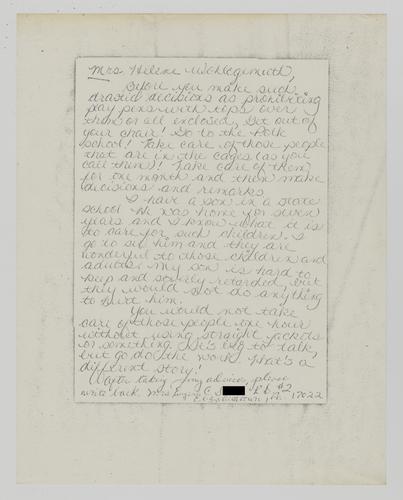 Mrs Helene Wohlgemuth,
Before you make such
drastic decisions as prohibiting
play pens with tops over
them or all enclosed, Get out of
your chair! Go to the Polk
school! Take care of those people
that are in the cages (as you
call them! Take care of them
for one month and then make
decisions and remarks
I have a son in a state
school He was home for seven
years and I know what it is
to care for such children. I
go to see him and they are
wonderful to those children and
adults. My son is hard to
keep and severly retarded, but
they would not do anything
to hurt him.
You would not take
care of those people one hour
without using straight jackets
or something. It's easy to talk,
but go do the work. That's a
different story!
After taking my advice, please
write back Mrs C. S R D #2
Elizabethtown, Pa. 17022